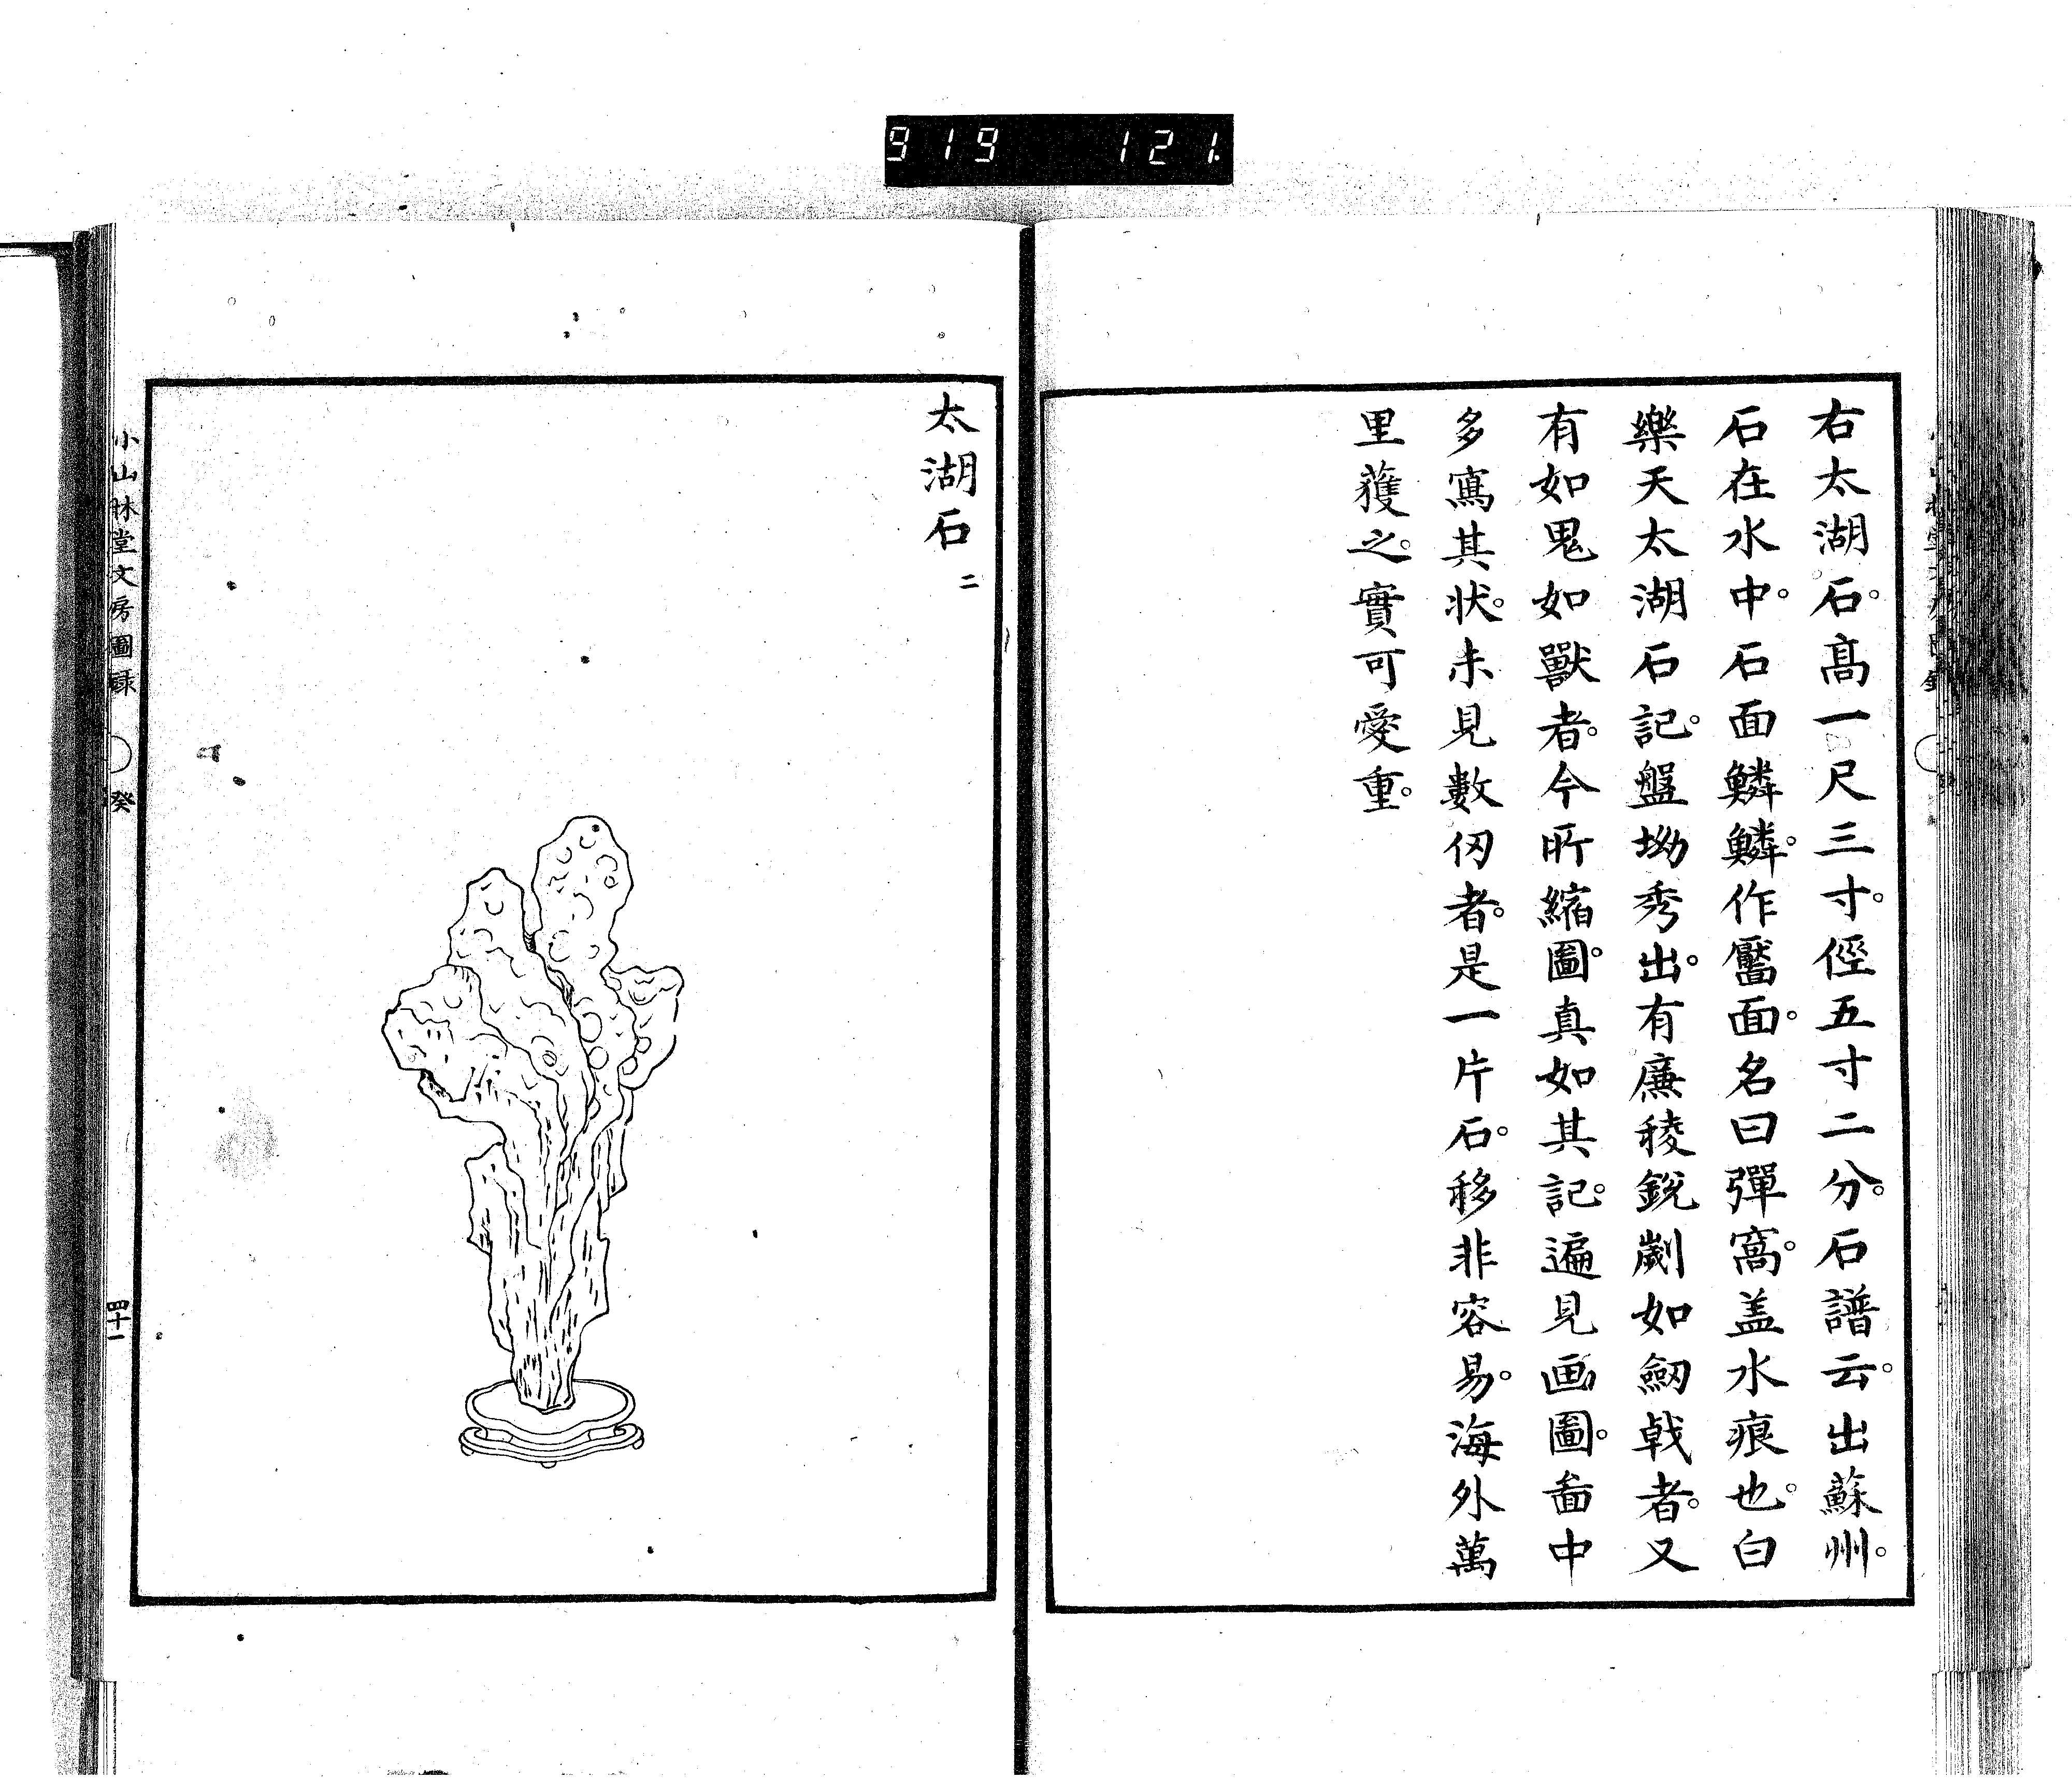 919 121
右太湖石。高一尺三寸。徑五寸二分。石譜云。出蘇州。
石在水中。石面鱗鱗。作靨面。名曰彈窩。盖水痕也。白
樂天太湖石記。盤坳秀出。有廉稜銳劌如劒戟者。又
有如鬼如獸者。今所縮圖。真如其記。遍見画圖。畵中
多寫其狀。未見數仞者。是一片石。移非容易。海外萬
里蒦之。實可愛重。
太湖石 二
小山林堂文房圖録 癸 四十一